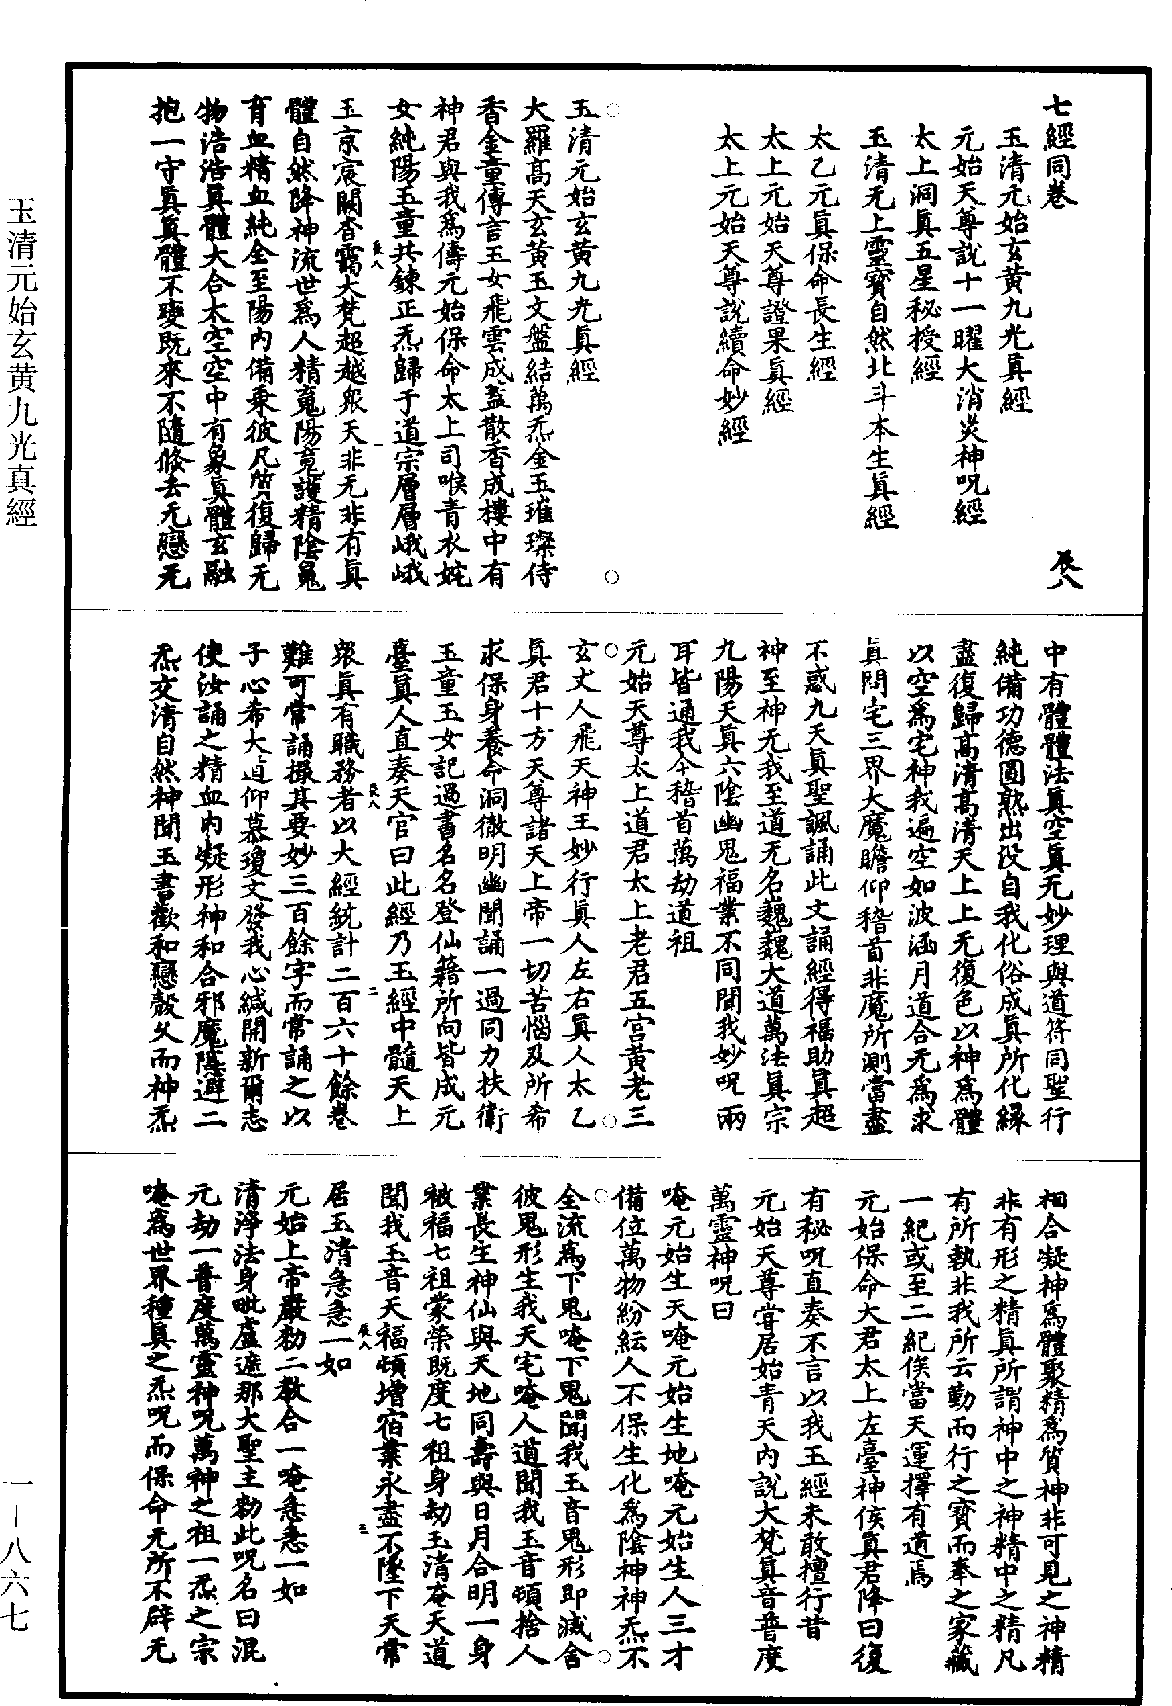 七經同卷　辰八
玉清元始玄黄九光真經
元始天尊説十一曜大消災神呪經
太上洞真五星秘授經
玉清无上靈寳自然北斗本生真經
太乙元真保命長生經
太上元始天尊證果真經
太上元始天尊説續命妙經
玉清元始玄黄九光真經
大羅髙天玄黄玉文盤結萬炁金玉璀璨侍
香金童傳言玉女飛雲成蓋散香成樓中有
神君與我爲儔元始保命太上司喉青衣姹
女純陽玉童共鍊正炁歸于道宗層層峨峨
辰八
一
玉京宸闕杳靄大梵超越衆天非无非有真
體自然降神流世爲人精䰟陽竟護精陰䰟
育血精血純全至陽内備乘彼凡質復歸无
物浩浩真體大合太空空中有象真體玄融
抱一守真真體不變既來不隨倏去无戀无
中有體體法真空真无妙理與道符同聖行
純備功德圓熟出没自我化俗成真所化縁
盡復歸髙清髙清天上上无復色以神爲體
以空爲宅神我遍空如波涵月道合无爲求
真問宅三界大魔瞻仰稽首非魔所測當盡
不惑九天真聖諷誦此文誦經得福助真超
神至神无我至道无名巍巍大道萬法真宗
九陽天真六陰幽鬼福業不同聞我妙呪兩
耳皆通我今稽首萬劫道祖
元始天尊太上道君太上老君五宫黄老三
玄丈人飛天神王妙行真人左右真人太乙
真君十方天尊諸天上帝一切苦惱及所希
求保身養命洞徹明幽聞誦一過同力扶衛
玉童玉女記過書名名登仙籍所向皆成元
臺真人直奏天官曰此經乃玉經中髓天上
辰八
二
衆真有職務者以大經統計二百六十餘卷
難可常誦撮其要妙三百餘字而常誦之以
子心希大道仰慕瓊文發我心緘開新爾志
使汝誦之精血内凝形神和合邪魔陰避二
炁交清自然神聞玉書歡和戀殼父而神炁
相合凝神爲體聚精爲質神非可見之神精
非有形之精真所謂神中之神精中之精凡
有所執非我所云勤而行之寳而奉之家藏
一紀或至二紀俟當天運擇有道焉
元始保命大君太上左臺神俟真君降曰復
有秘呪直奏不言以我玉經未敢擅行昔
元始天尊嘗居始青天内説大梵真音普度
萬靈神呪曰
唵元始生天唵元始生地唵元始生人三才
備位萬物紛紜人不保生化爲陰神神炁不
全流爲下鬼唵下鬼聞我玉音鬼形即滅舍
彼鬼形生我天宅唵人道聞我玉音頓捨人
業長生神仙與天地同壽與日月合明一身
被福七祖蒙榮既度七祖身劫玉清唵天道
聞我玉音天福頓增宿業永盡不墜下天常
辰八
三
居玉清急急一如
元始上帝嚴勑二教合一唵急急一如
清淨法身毗盧遮那大聖主勑此呪名曰混
元劫一普度萬靈神呪萬神之祖一炁之宗
唵爲世界種真之炁呪而保命无所不辟无
玉清元始玄黄九光真經
一—八六七